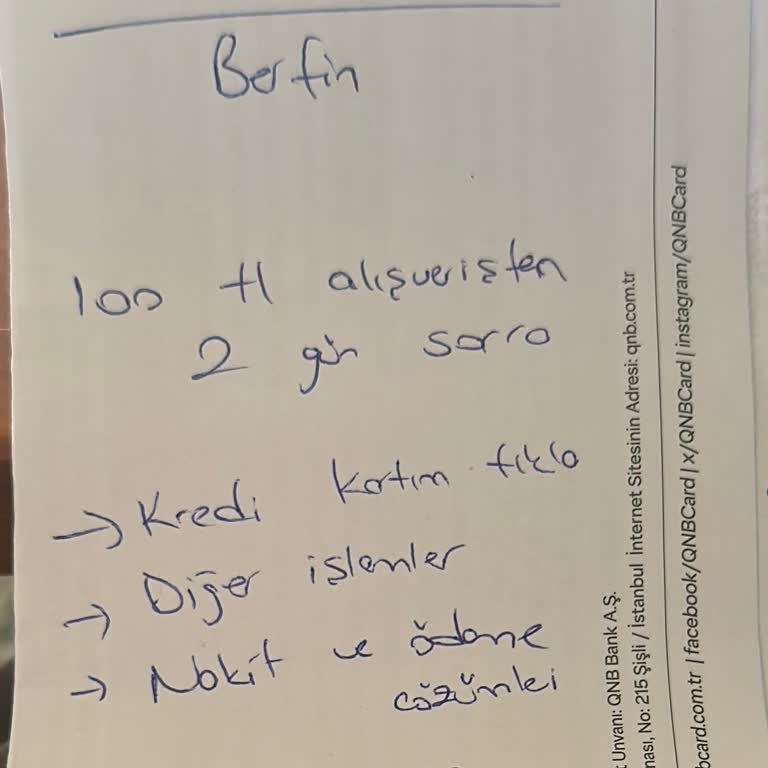 Berfin
100 tl alışverişten
2 gün sonra
→ Kredi kartım tıkla
→ Diğer işlemler
→ Nakit ve ödeme
çözümleri
t Unvanı: QNB Bank A.Ş.
nası, No: 215 Şişli / İstanbul İnternet Sitesinin Adresi: qnb.com.tr
bcard.com.tr | facebook/QNBCard | x/QNBCard | instagram/QNBCard